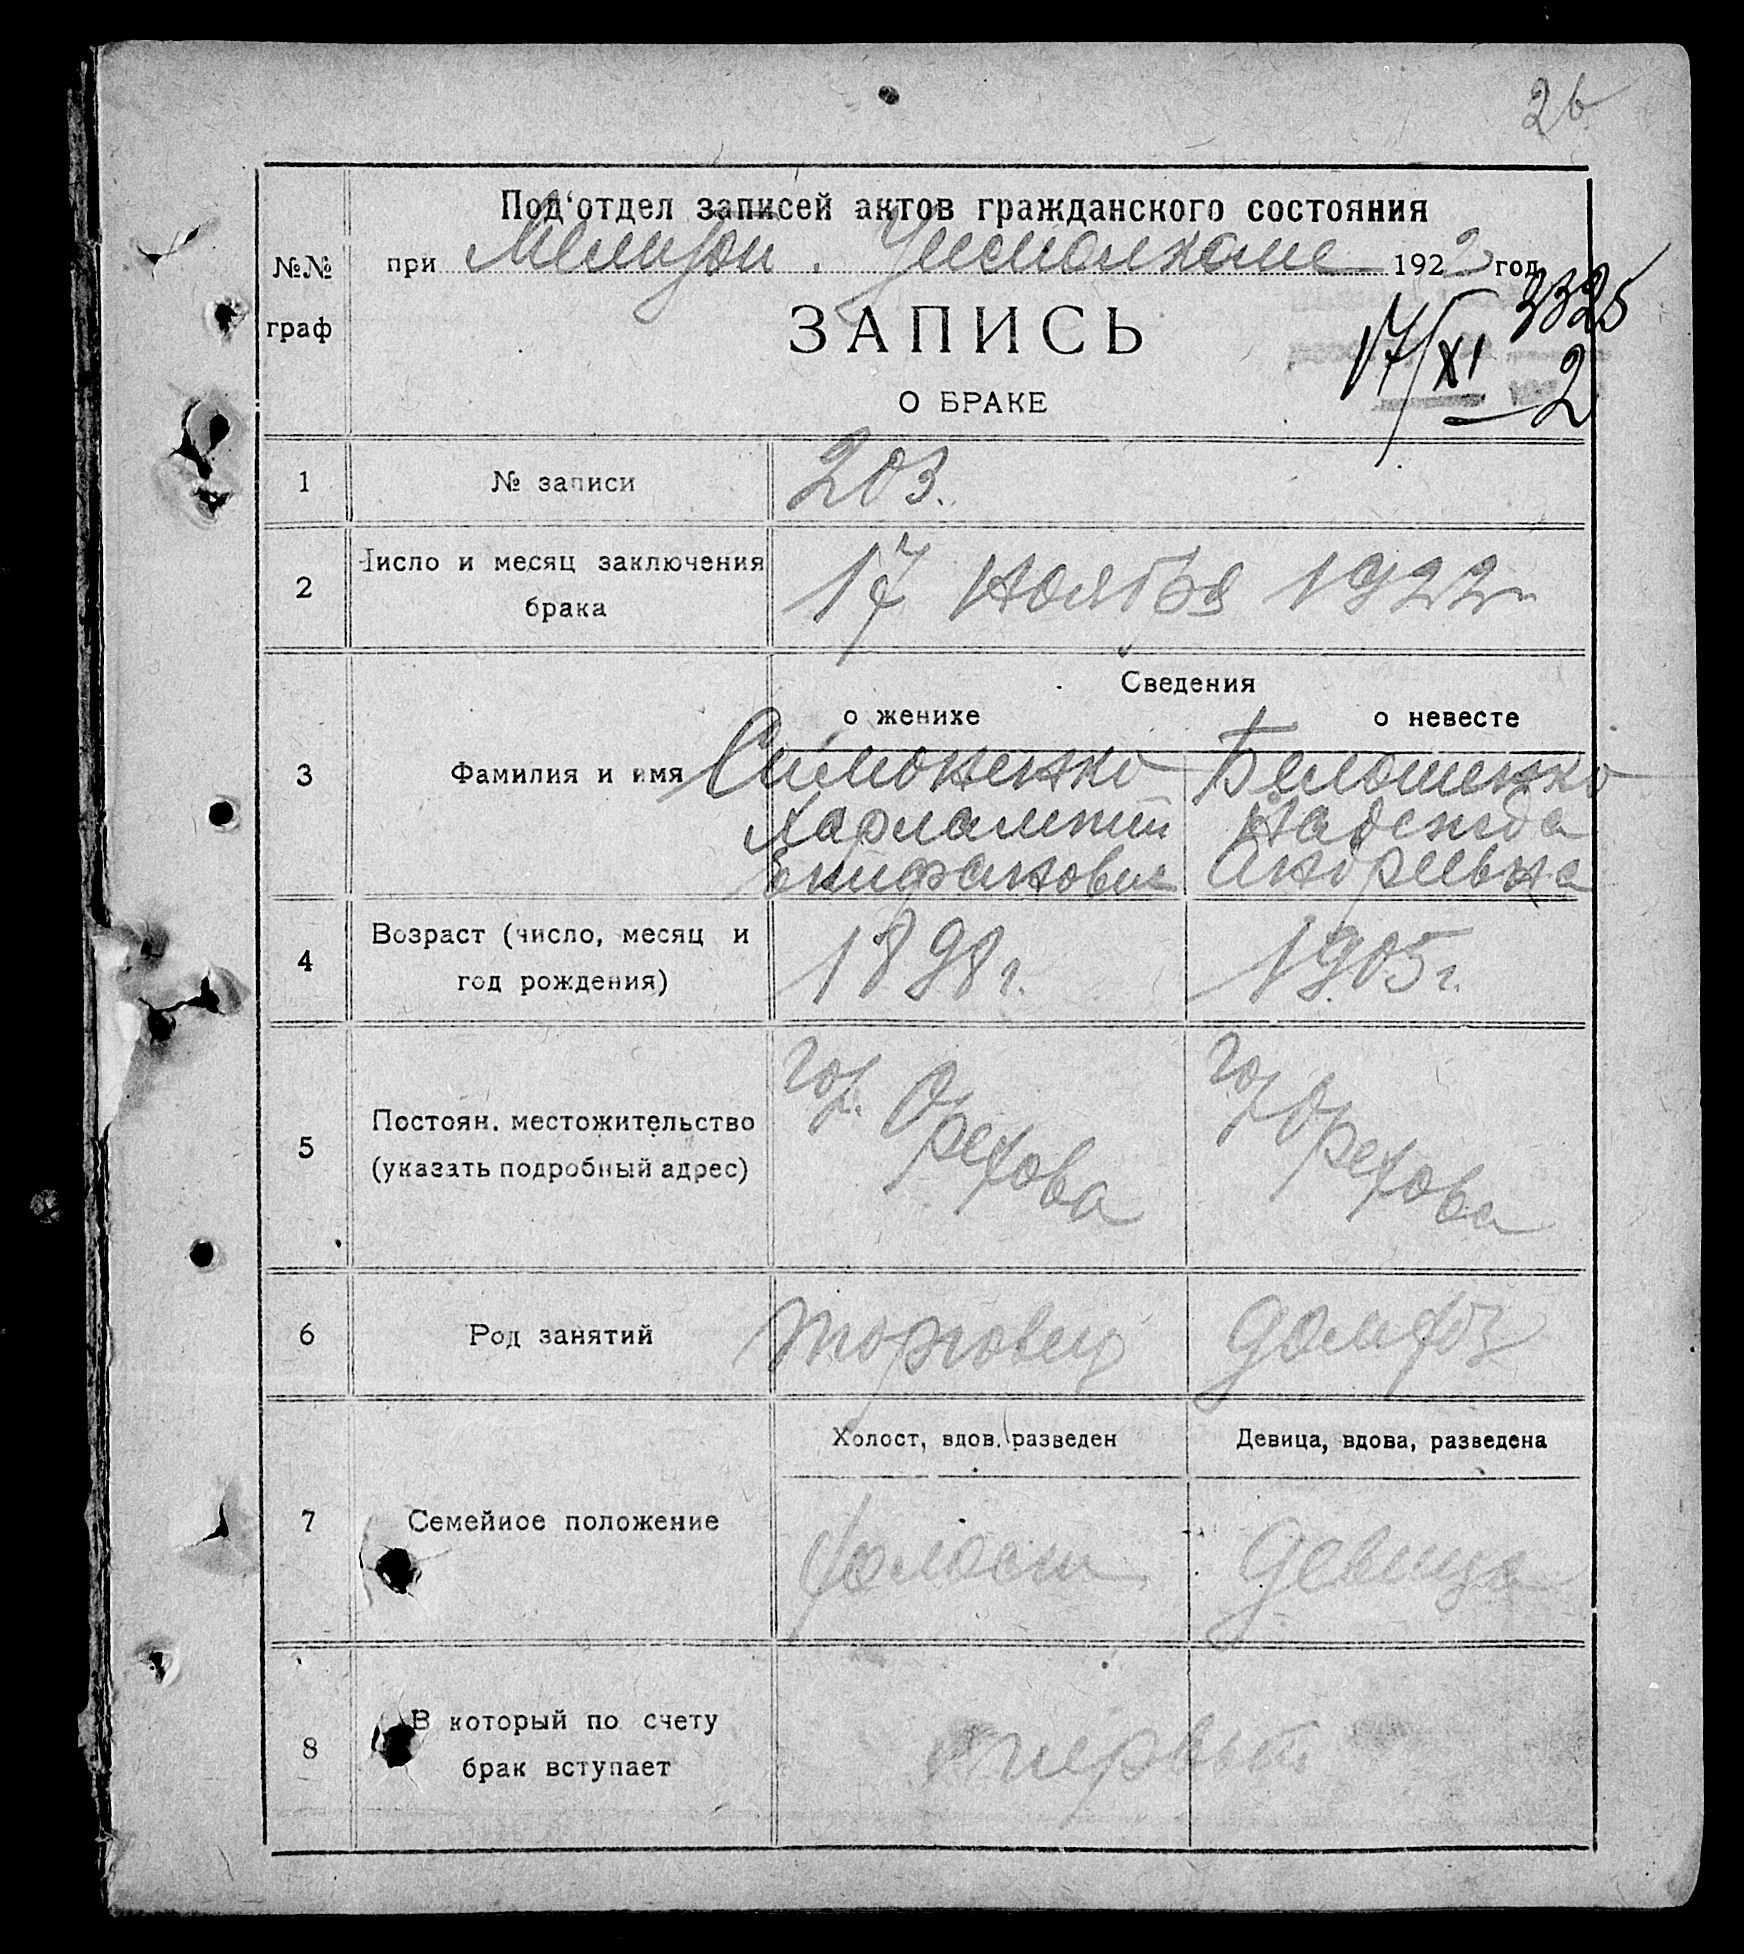 26
Под'отдел записей актов гражданского состояния
№№
граф
при Мелитоп. Уисполкоме 1922 год
ЗАПИСЬ
О БРАКЕ
17/XI 3325
2
1 № записи 203.
2 Число и месяц заключения
брака
17 Ноября 1922 г
Сведения
о женихе о невесте
3 Фамилия и имя
Симоненко Белошенко
Харлампий Надежда
Епифанович Андреевна
4 Возраст (число, месяц и
год рождения)
1898 г. 1905 г.
5 Постоян. местожительство
(указать подробный адрес)
гор. Орехова гор Орехова
6 Род занятий торговец домхоз
Холост, вдов. разведен Девица, вдова, разведена
7 Семейное положение холост девица
8 В который по счету
брак вступает
первый